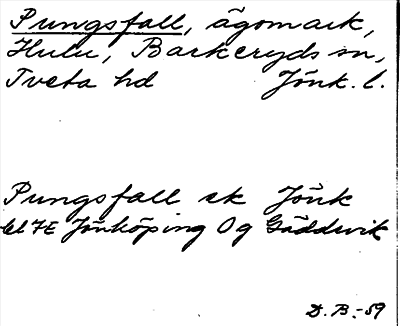 Pungsfall, ägomark,
Hulu, Barkeryds sn,
Tveta hd Jönk. l.
Pungsfall ek Jönk
bl 7E Jönköping Og Gäddvik
D. B. -59